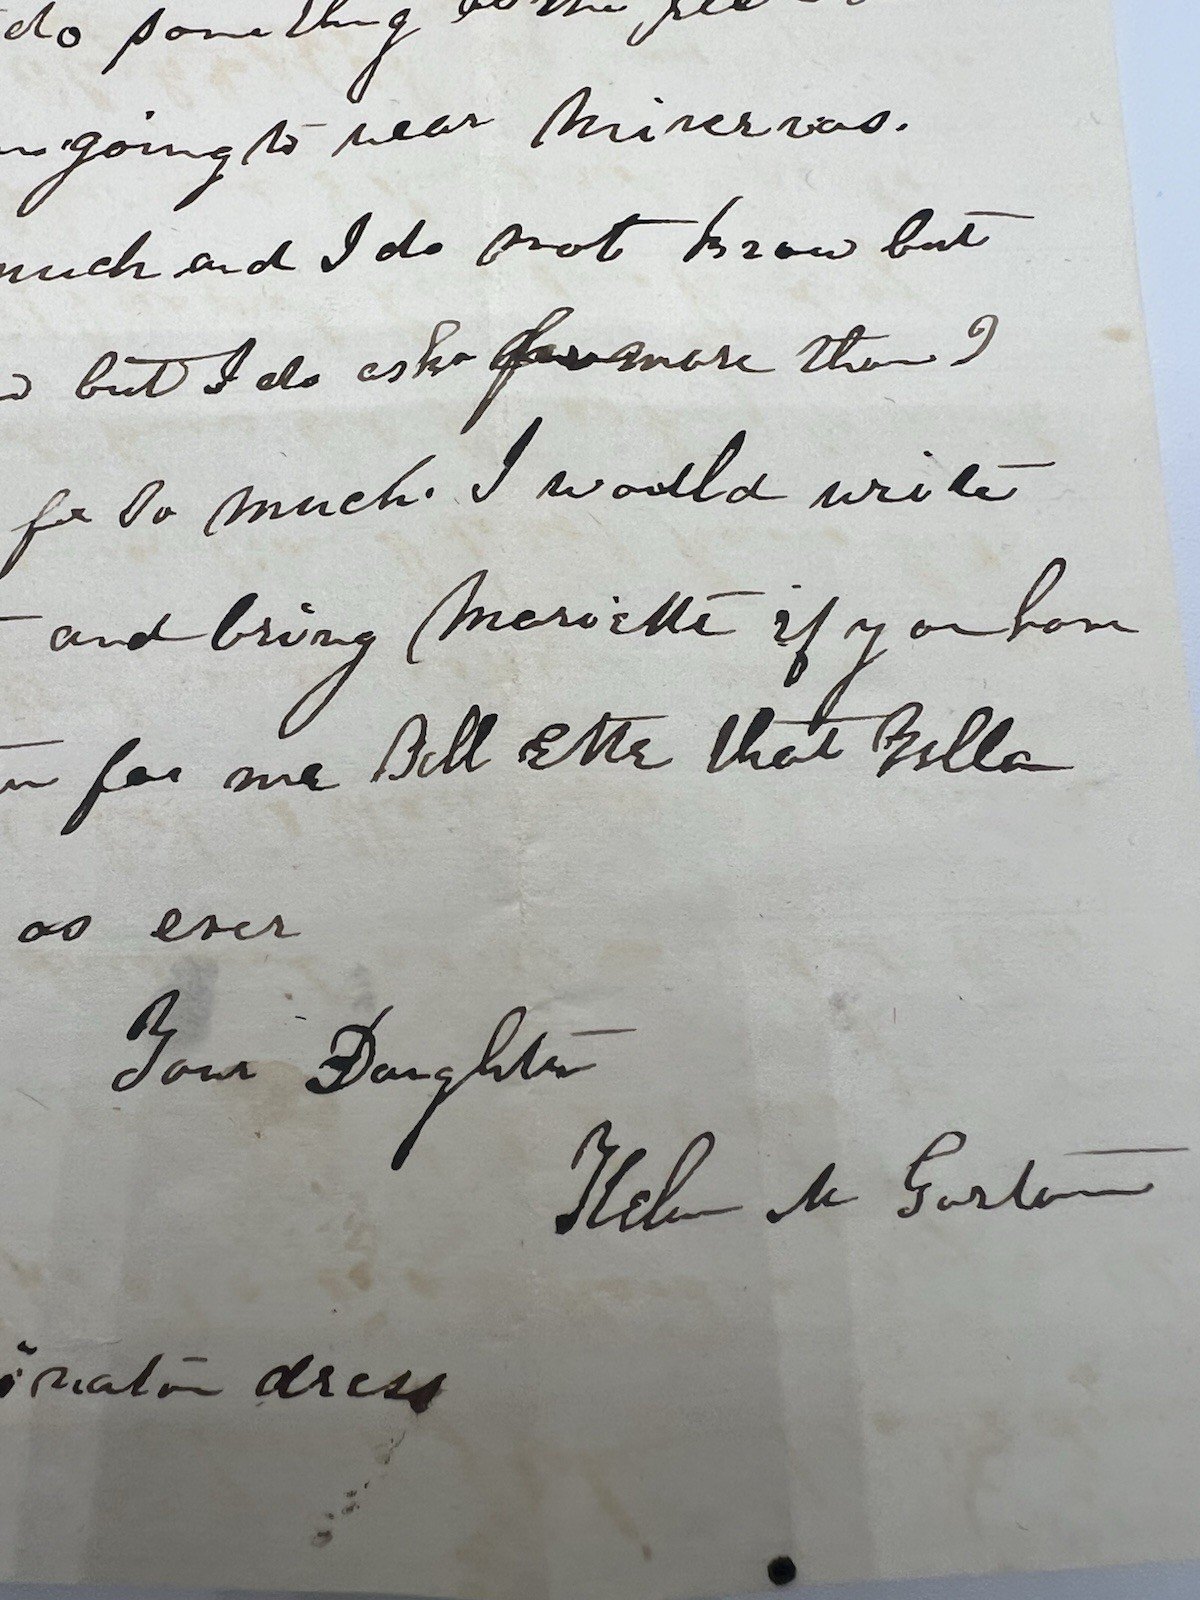 do something
going to wear Minervas.
much and I do not know but
but I do ask more than I
for so much. I would write
and bring Mariette if you have
for me Bell Ette that Bella
as ever
Your Daughter
Helen M
dress